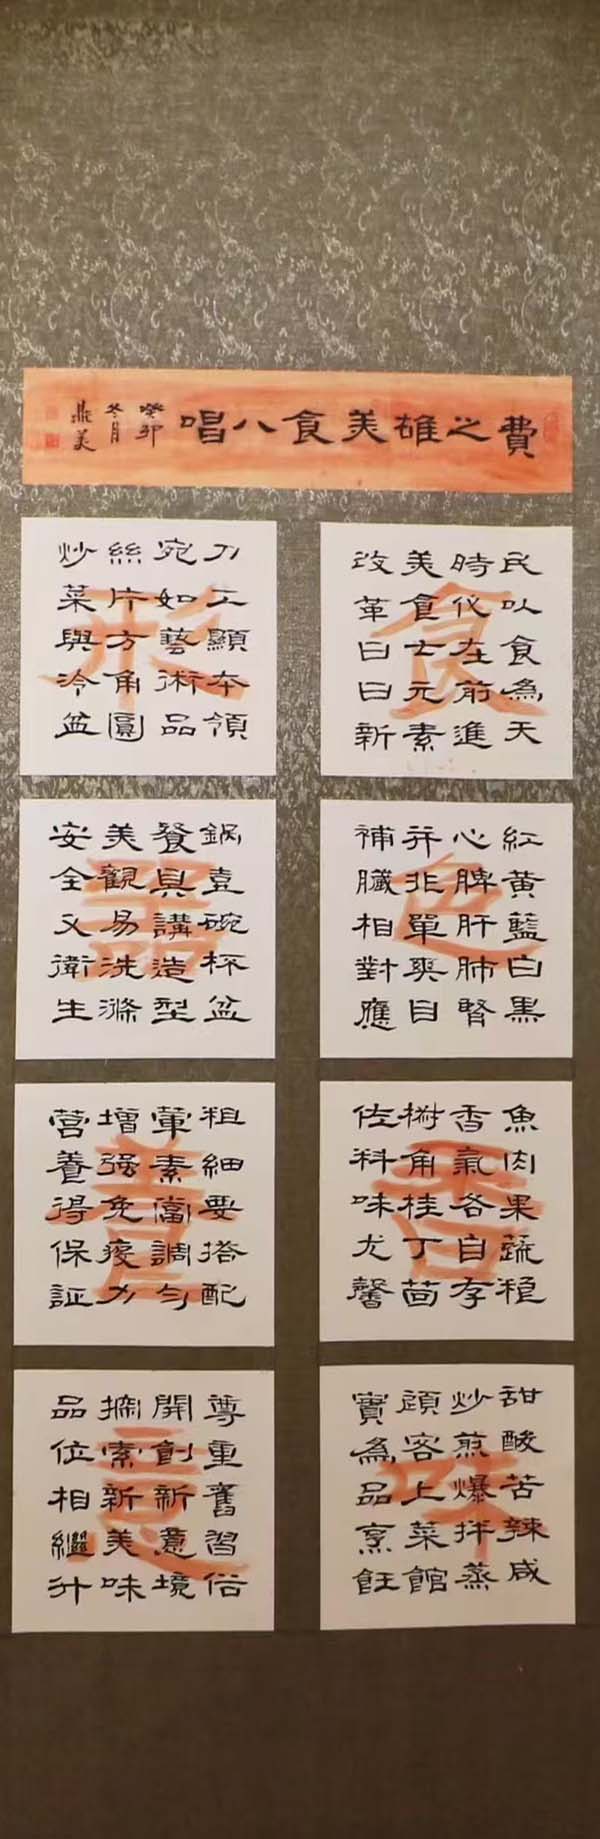 費之雄美食八唱
癸卯
冬月
燕美
食
民以食為天
時代在前進
美食七元素
改革日日新
色
紅黄藍白黑
心脾肝肺腎
并非單爽目
補臟相對應
香
魚肉果蔬穐
香氣各自存
樹角桂丁茴
佐料味尤馨
味
甜酸苦辣咸
炒煎爆拌蒸
顧客上菜館
實為品烹飪
形
刀工顯本領
宛如藝術品
絲片方角圓
炒菜與冷盆
器
鍋壺碗杯盆
餐具講造型
美觀易洗滌
安全又衛生
養
粗細要搭配
葷素當調勻
增强免疫力
營養得保証
意
尊重舊習俗
開創新意境
探索新美味
品位相繼升